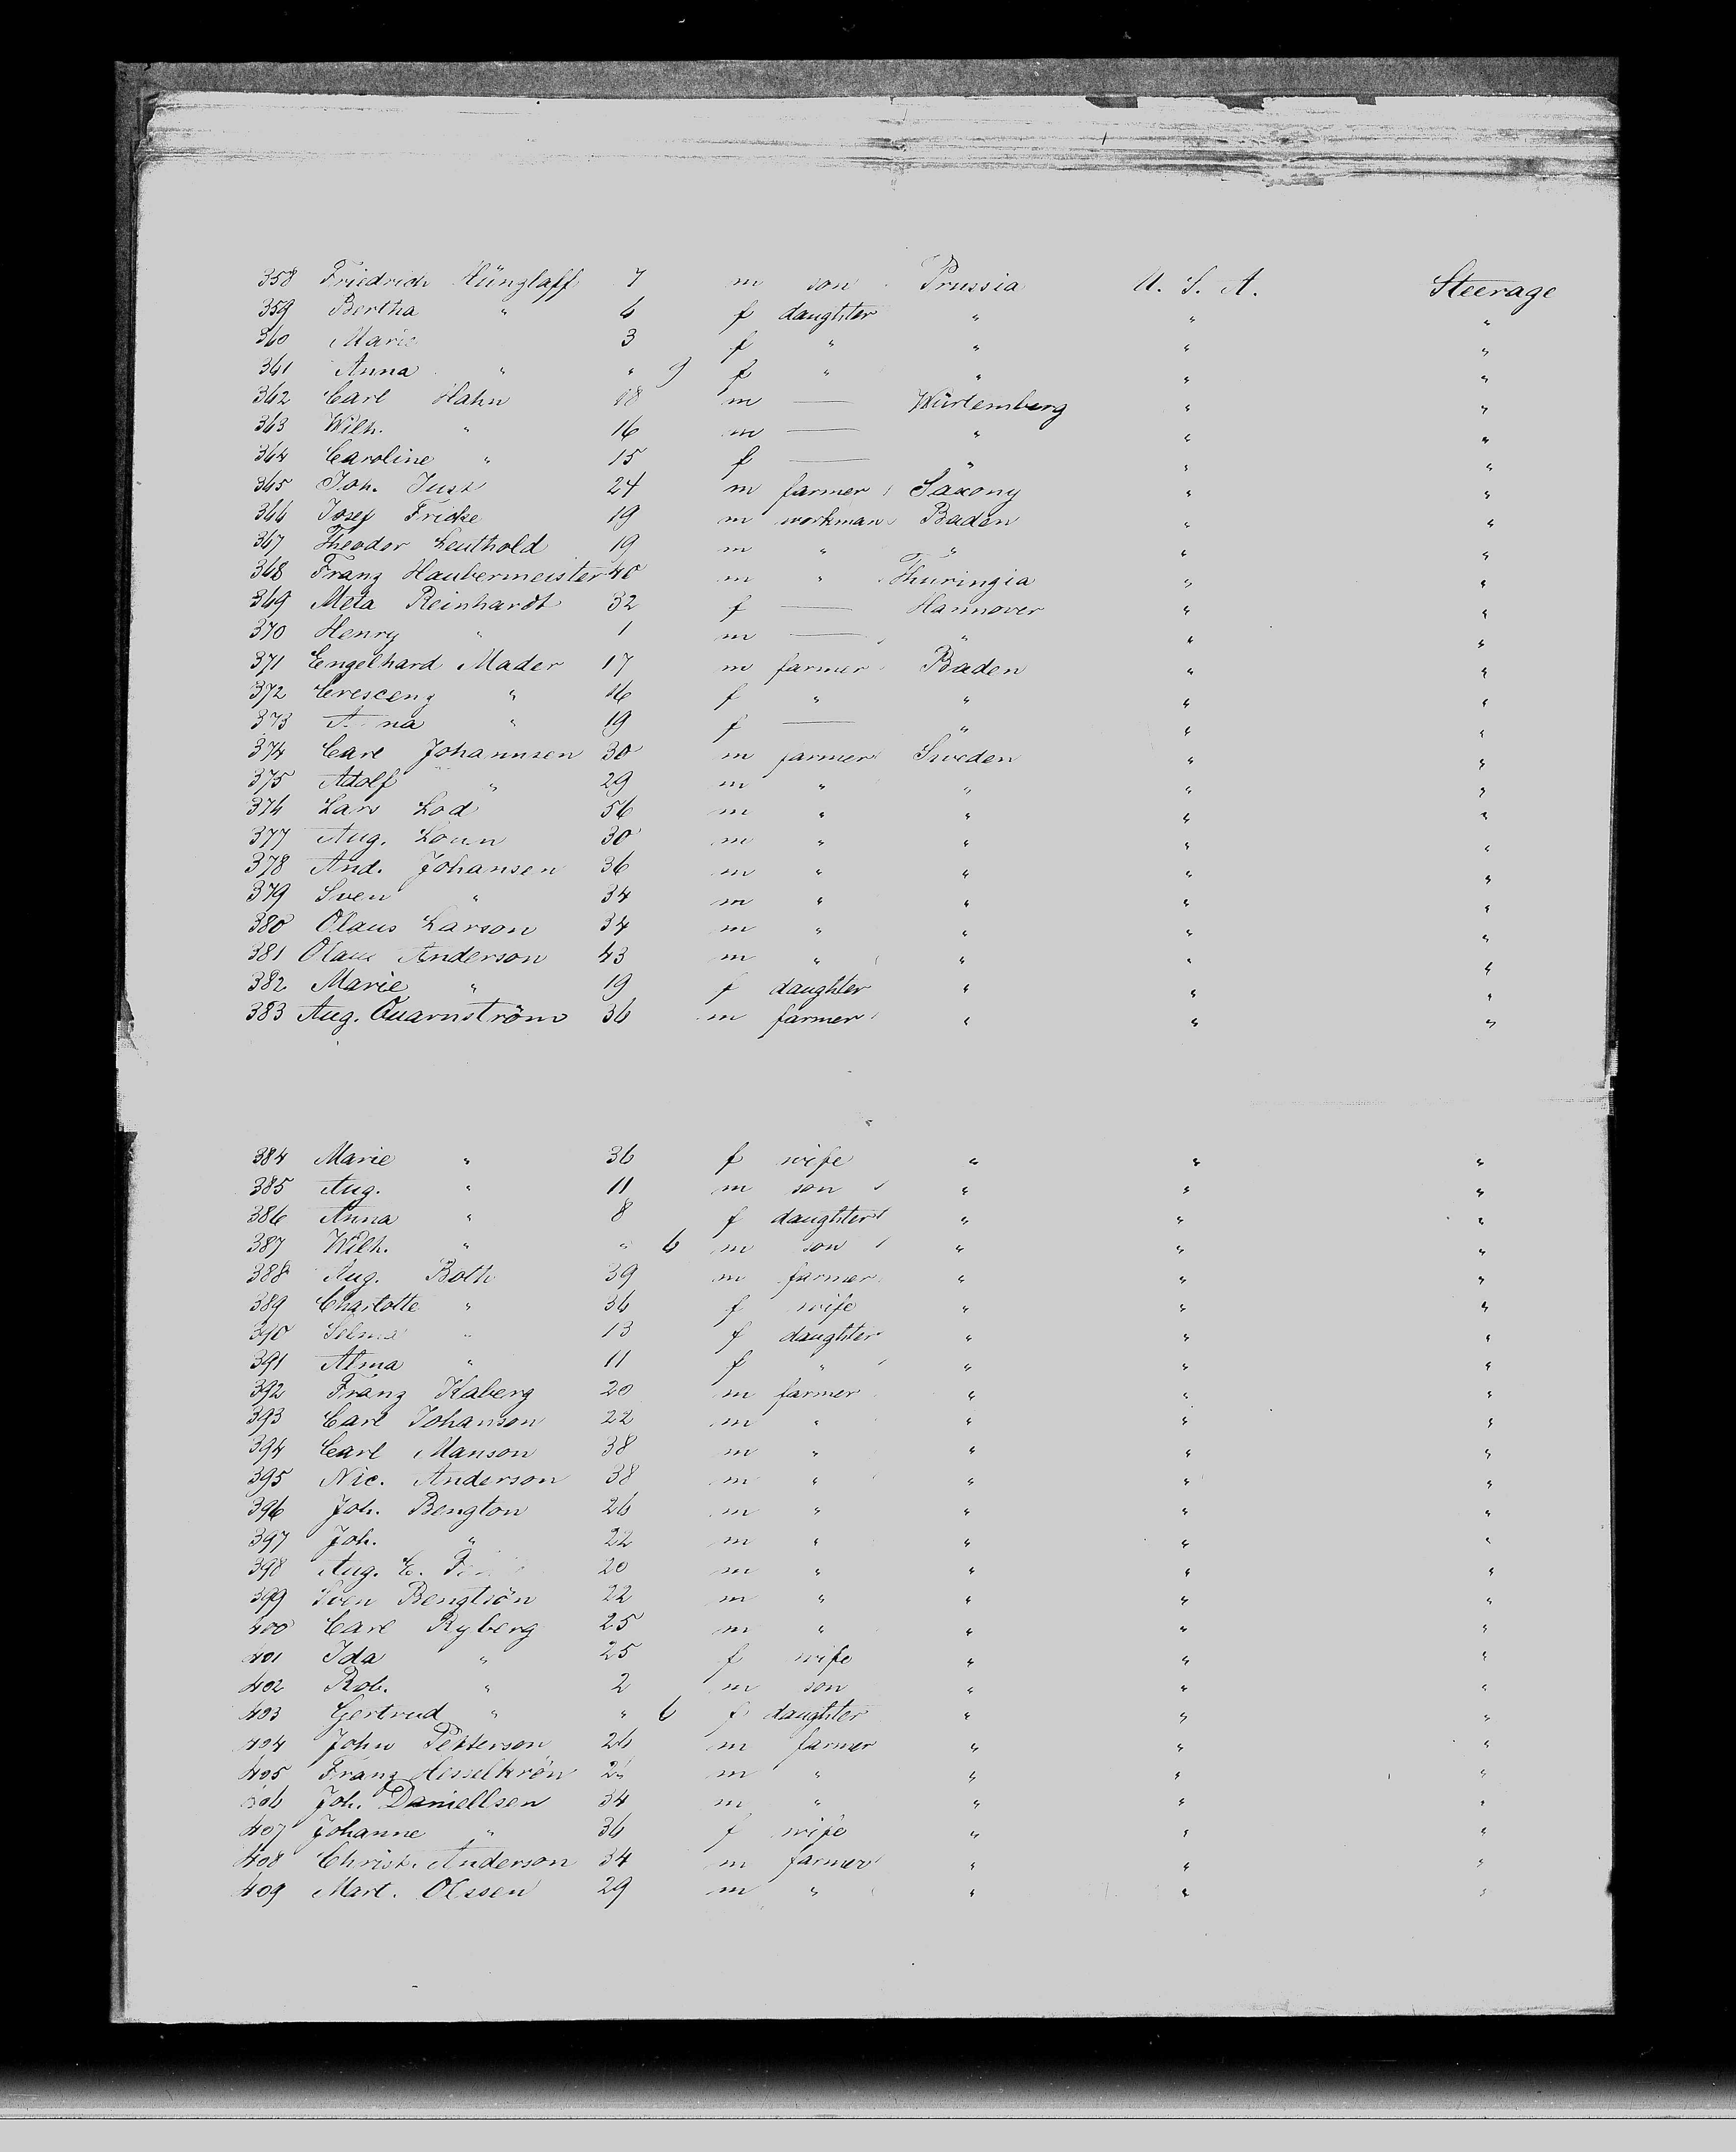 358 Friedrich Hünglaff 7 m son Prussia U. S. A. Steerage
359 Bertha " 6 f daughter " " "
360 Marie 3 f " " " "
361 Anna " " 9 f " " " "
362 Carl Hahn 18 m — Würtemberg " "
363 Wilh. " 16 m — " " "
364 Caroline " 15 f — " " "
365 Joh. Just 24 m farmer Saxony " "
366 Josef Fricke 19 m workman Baden " "
367 Theodor Leuthold 19 m " " " "
368 Franz Haubermeister 40 m " Thuringia " "
369 Meta Reinhardt 32 f — Hannover " "
370 Henry " 1 m — " " "
371 Engelhard Mader 17 m farmer Baden " "
372 Crescenz " 16 f " " " "
373 " 19 f — " " "
374 Carl Johannsen 30 m farmer Sweden " "
375 Adolf " 29 m " " " "
376 Lars Lod 56 m " " " "
377 Aug. 30 m " " " "
378 And. Johansen 36 m " " " "
379 Sven " 34 m " " " "
380 Olaus Larson 34 m " " " "
381 Olaus Anderson 43 m " " " "
382 Marie " 19 f daughter " " "
383 Aug. Quarnström 36 m farmer " " "
384 Marie " 36 f wife " " "
385 Aug. " 11 m son " " "
386 Anna " 8 f daughter " " "
387 Wilh. " " 6 m son " " "
388 Aug. Both 39 m farmer " " "
389 Charlotte " 36 f wife " " "
390 Selma " 13 f daughter " " "
391 Alma " 11 f " " " "
392 Franz Haberg 20 m farmer " " "
393 Carl Johanson 22 m " " " "
394 Carl Manson 38 m " " " "
395 Nic. Anderson 38 m " " " "
396 Joh. Bengton 26 m " " " "
397 Joh. " 22 m " " " "
398 Aug. E. 20 m " " " "
399 Sven Bengtsön 22 m " " " "
400 Carl Ryberg 25 m " " " "
401 Ida " 25 f wife " " "
402 Rob. " 2 m son " " "
403 Gertrud " " 6 f daughter " " "
404 John Petterson 26 m farmer " " "
405 Franz Hesselkrön m " " " "
406 Joh. Daniellsen 34 m " " " "
407 Johanne " 36 f wife " " "
408 Christ. Anderson 34 m farmer " " "
409 Mart. Olssen 29 m " " " "